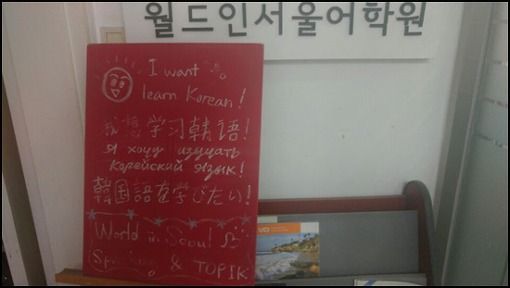 월드인서울어학원
I want to
learn Korean!
我想学习韩语!
Я хочу изучать
Корейский язык!
韓国語を学びたい!
World in Seoul
Speaking & TOPIK